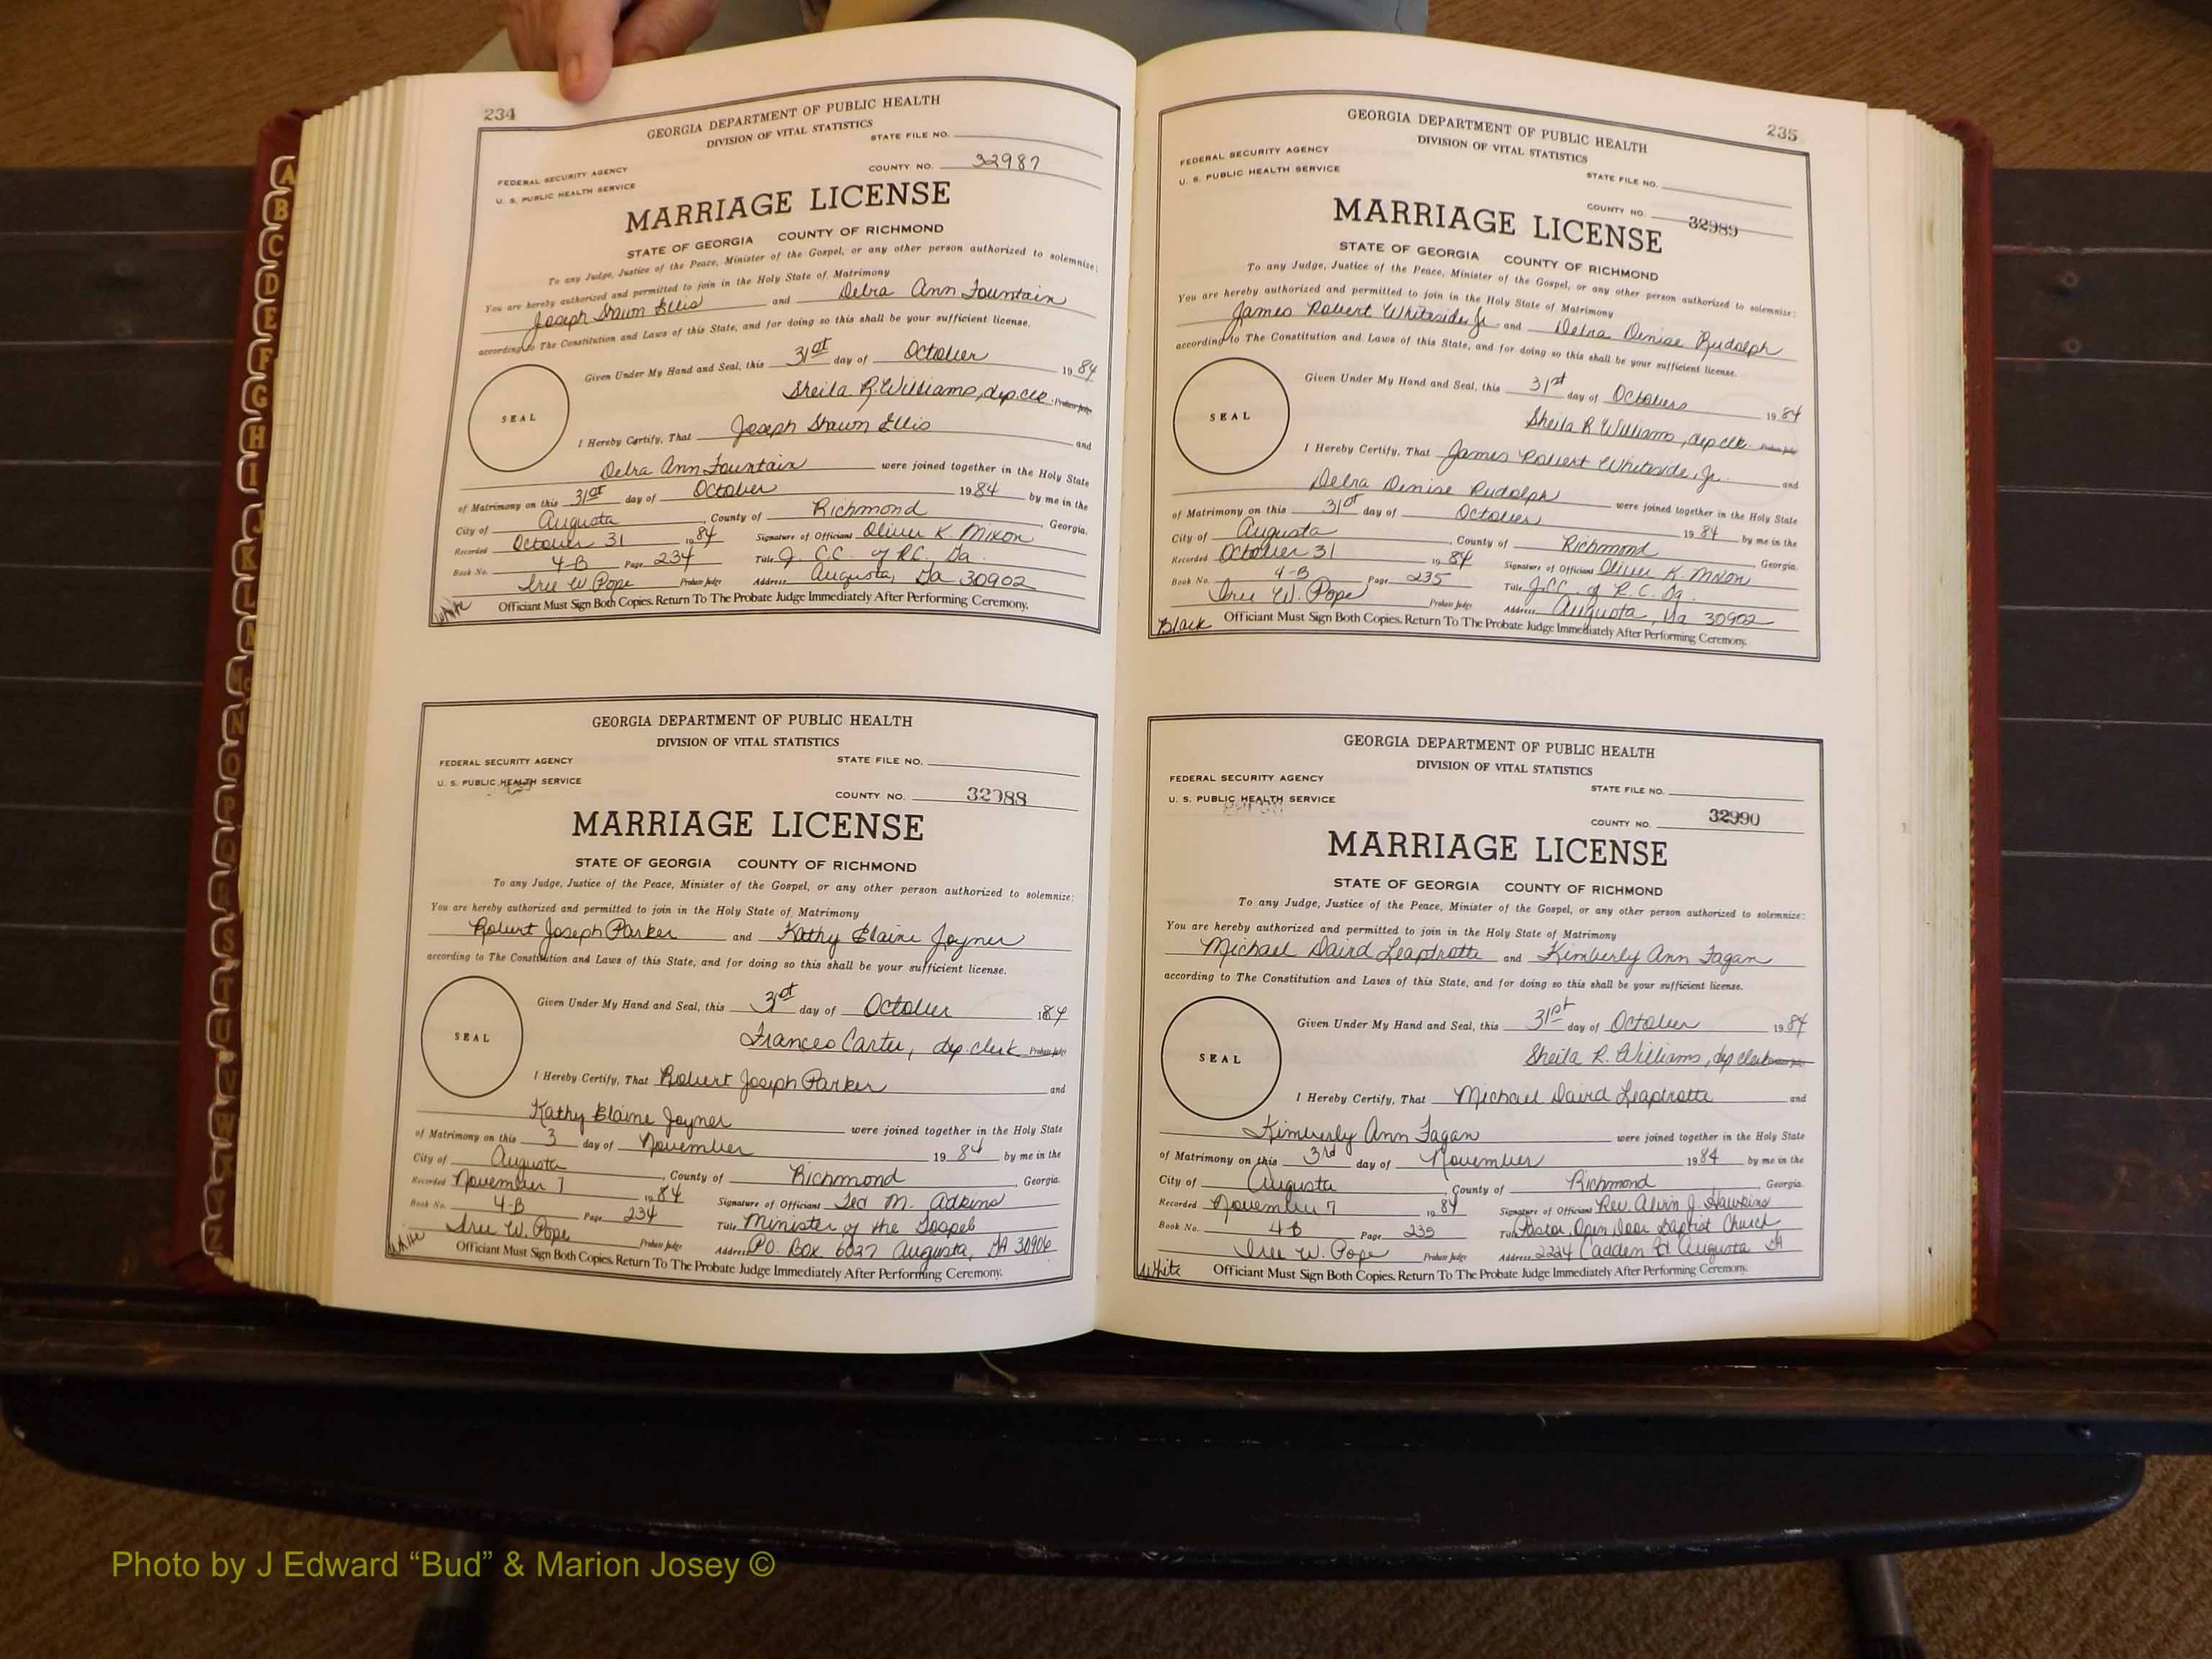 234
GEORGIA DEPARTMENT OF PUBLIC HEALTH
DIVISION OF VITAL STATISTICS
STATE FILE NO.
FEDERAL SECURITY AGENCY
U. S. PUBLIC HEALTH SERVICE
COUNTY NO. 32987
MARRIAGE LICENSE
STATE OF GEORGIA COUNTY OF RICHMOND
To any Judge, Justice of the Peace, Minister of the Gospel, or any other person authorized to solemnize:
You are hereby authorized and permitted to join in the Holy State of Matrimony
Joseph Shawn Ellis and Debra Ann Fountain
according to The Constitution and Laws of this State, and for doing so this shall be your sufficient license.
Given Under My Hand and Seal, this 31st day of October 1984
SEAL
Sheila R. Williams, dep. clk. Probate Judge
I Hereby Certify, That Joseph Shawn Ellis and
Debra Ann Fountain were joined together in the Holy State
of Matrimony on this 31st day of October 1984 by me in the
City of Augusta, County of Richmond, Georgia.
Recorded October 31 1984 Signature of Officiant Oliver K. Mixon
Book No. 4-B Page 234 Title J. C.C. of R.C. Ga.
Iree W. Pope Probate Judge Address Augusta, Ga 30902
White Officiant Must Sign Both Copies. Return To The Probate Judge Immediately After Performing Ceremony.
GEORGIA DEPARTMENT OF PUBLIC HEALTH
DIVISION OF VITAL STATISTICS
FEDERAL SECURITY AGENCY
STATE FILE NO.
U. S. PUBLIC HEALTH SERVICE
COUNTY NO. 32988
MARRIAGE LICENSE
STATE OF GEORGIA COUNTY OF RICHMOND
To any Judge, Justice of the Peace, Minister of the Gospel, or any other person authorized to solemnize:
You are hereby authorized and permitted to join in the Holy State of Matrimony
Robert Joseph Parker and Kathy Elaine Joyner
according to The Constitution and Laws of this State, and for doing so this shall be your sufficient license.
Given Under My Hand and Seal, this 31st day of October 1984
SEAL
Frances Carter, dep. clerk Probate Judge
I Hereby Certify, That Robert Joseph Parker and
Kathy Elaine Joyner were joined together in the Holy State
of Matrimony on this 3 day of November 1984 by me in the
City of Augusta, County of Richmond, Georgia.
Recorded November 7 1984 Signature of Officiant Ted M. Adkins
Book No. 4-B Page 234 Title Minister of the Gospel
Iree W. Pope Probate Judge Address P.O. Box 6027 Augusta, GA 30906
White Officiant Must Sign Both Copies. Return To The Probate Judge Immediately After Performing Ceremony.
235
GEORGIA DEPARTMENT OF PUBLIC HEALTH
DIVISION OF VITAL STATISTICS
FEDERAL SECURITY AGENCY
U. S. PUBLIC HEALTH SERVICE
STATE FILE NO.
COUNTY NO. 32989
MARRIAGE LICENSE
STATE OF GEORGIA COUNTY OF RICHMOND
To any Judge, Justice of the Peace, Minister of the Gospel, or any other person authorized to solemnize:
You are hereby authorized and permitted to join in the Holy State of Matrimony
James Robert Whiteside, Jr. and Debra Denise Rudolph
according to The Constitution and Laws of this State, and for doing so this shall be your sufficient license.
Given Under My Hand and Seal, this 31st day of October 1984
SEAL
Sheila R Williams, dep clk. Probate Judge
I Hereby Certify, That James Robert Whiteside, Jr. and
Debra Denise Rudolph were joined together in the Holy State
of Matrimony on this 31st day of October 1984 by me in the
City of Augusta, County of Richmond, Georgia.
Recorded October 31 1984 Signature of Officiant Oliver K. Mixon
Book No. 4-B Page 235 Title J.C.C. of R.C. Ga.
Iree W. Pope Probate Judge Address Augusta, Ga 30902
Black Officiant Must Sign Both Copies. Return To The Probate Judge Immediately After Performing Ceremony.
GEORGIA DEPARTMENT OF PUBLIC HEALTH
DIVISION OF VITAL STATISTICS
FEDERAL SECURITY AGENCY
STATE FILE NO.
U. S. PUBLIC HEALTH SERVICE
COUNTY NO. 32990
MARRIAGE LICENSE
STATE OF GEORGIA COUNTY OF RICHMOND
To any Judge, Justice of the Peace, Minister of the Gospel, or any other person authorized to solemnize:
You are hereby authorized and permitted to join in the Holy State of Matrimony
Michael David Leaptrotte and Kimberly Ann Fagan
according to The Constitution and Laws of this State, and for doing so this shall be your sufficient license.
Given Under My Hand and Seal, this 31st day of October 1984
SEAL
Sheila R. Williams, dep clerk
I Hereby Certify, That Michael David Leaptrotte and
Kimberly Ann Fagan were joined together in the Holy State
of Matrimony on this 3rd day of November 1984 by me in the
City of Augusta, County of Richmond, Georgia.
Recorded November 7 1984 Signature of Officiant Rev. Alvin J. Hawkins
Book No. 4-B Page 235 Title Pastor, Open Door Baptist Church
Iree W. Pope Probate Judge Address 2224 Augusta GA
White Officiant Must Sign Both Copies. Return To The Probate Judge Immediately After Performing Ceremony.
A
B
C
D
E
F
G
H
I
J
K
L
M
Mc
N
O
P
Q
R
S
T
U
V
W
Y
Z
Photo by J Edward “Bud” & Marion Josey ©